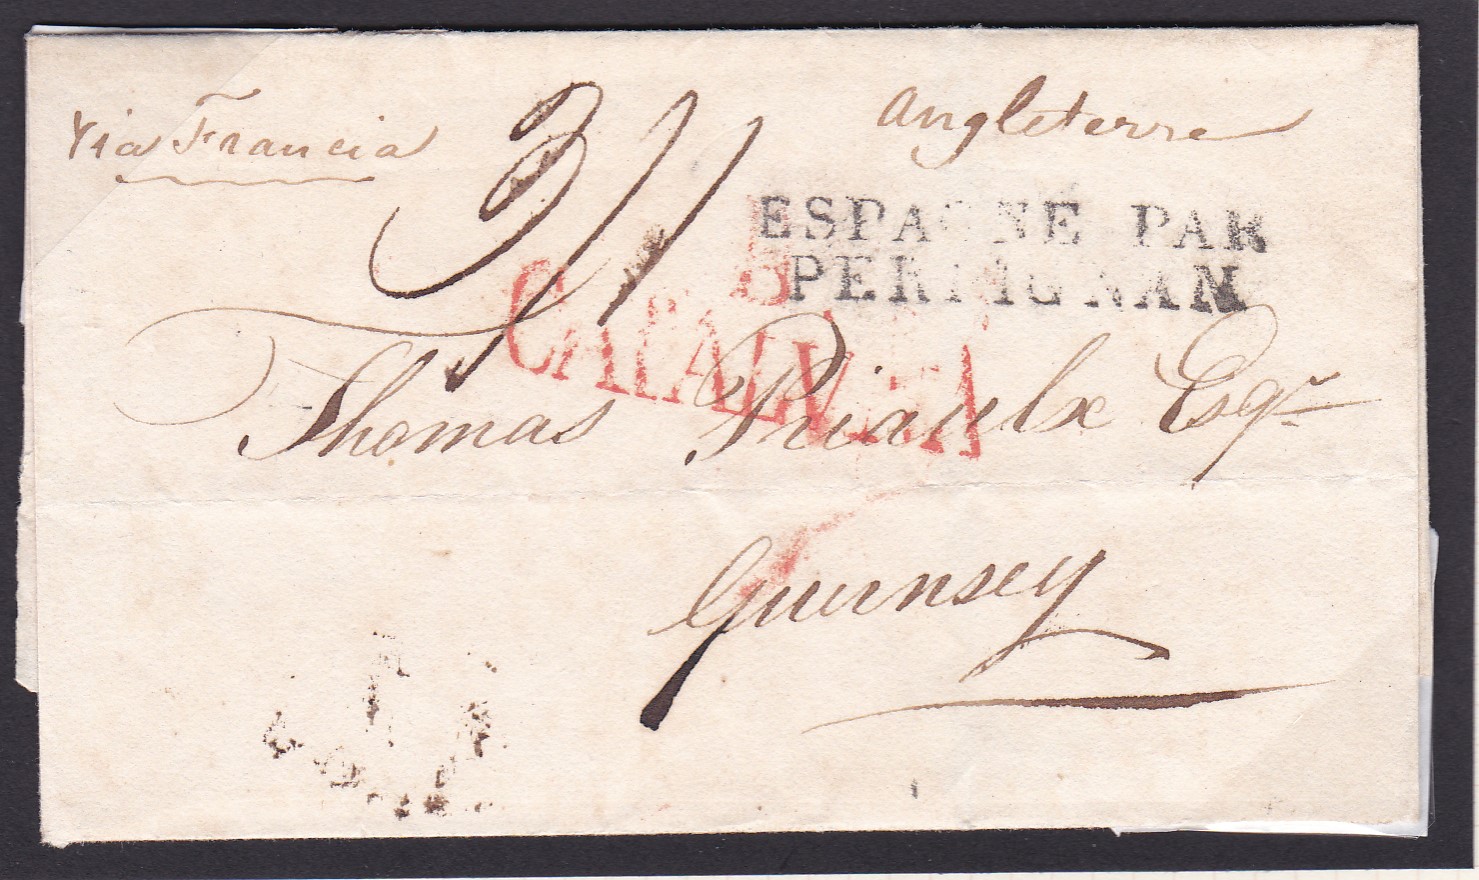 Via Francia
Angleterre
3/11
ESPAGNE PAR
PERPIGNAN
B
CATALUÑA
Thomas Priaulx Esqr
Guernsey